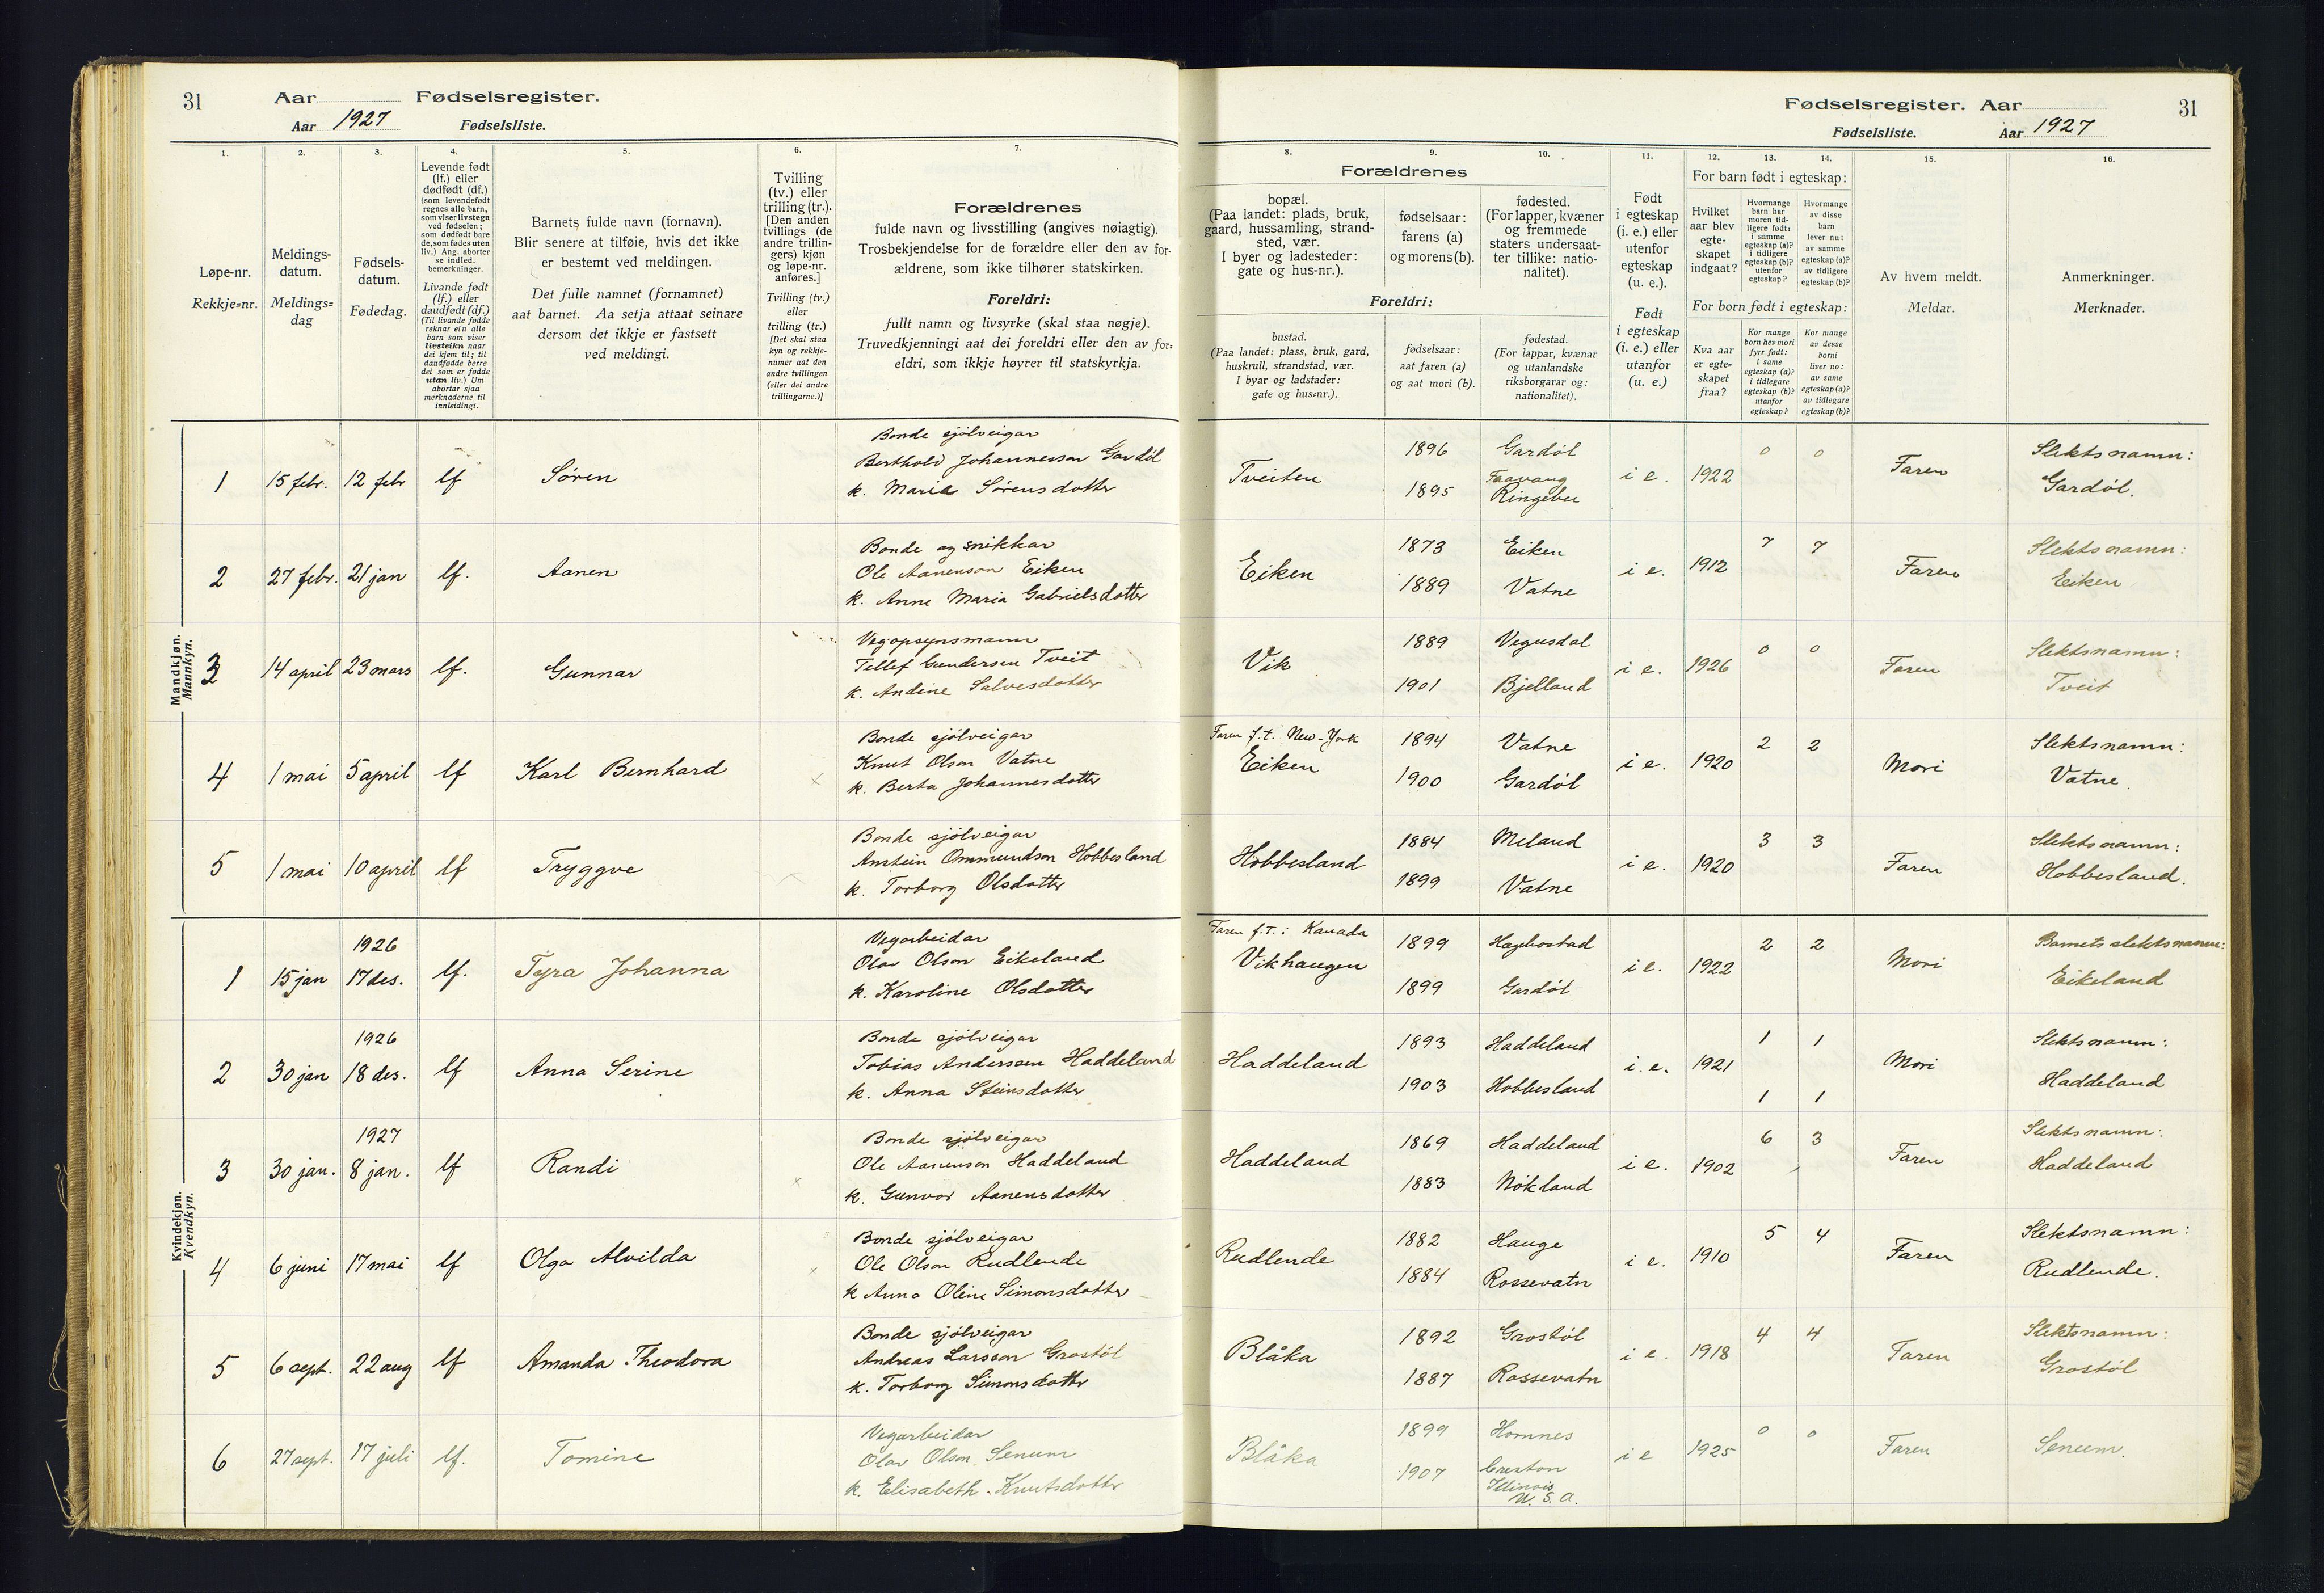 31 Aar Fødselsregister.
Aar 1927 Fødselsliste.
Fødselsregister. Aar 31
Fødselsliste. Aar 1927
1.
Løpe-nr.
Rekkje=nr.
2.
Meldings-
datum.
Meldings=
dag
3.
Fødsels-
datum.
Fødedag.
4.
Levende født
(lf.) eller
dødfødt (df.)
(som levendefødt
regnes alle barn,
som viser livstegn
ved fødselen;
som dødfødt bare
de, som fødes uten
liv.) Ang. aborter
se indled.
bemerkninger.
Livande født
(lf.) eller
daudfødt (df.)
(Til livande fødde
reknar ein alle
barn som viser
livsteikn naar
dei kjem til; til
daudfødde berre
dei som er fødde
utan liv.) Um
abortar sjaa
merknaderne til
innleidingi.
5.
Barnets fulde navn (fornavn).
Blir senere at tilføie, hvis det ikke
er bestemt ved meldingen.
Det fulle namnet (fornamnet)
aat barnet. Aa setja attaat seinare
dersom det ikkje er fastsett
ved meldingi.
6.
Tvilling
(tv.) eller
trilling (tr.).
[Den anden
tvillings (de
andre trillin-
gers) kjøn
og løpe-nr.
anføres.]
Tvilling (tv.)
eller
trilling (tr.)
[Det skal staa
kyn og rekkje-
numer aat den
andre tvillingen
(eller dei andre
trillingarne.)]
7.
Forældrenes
fulde navn og livsstilling (angives nøiagtig).
Trosbekjendelse for de forældre eller den av for-
ældrene, som ikke tilhører statskirken.
Foreldri:
fullt namn og livsyrke (skal staa nøgje).
Truvedkjenningi aat dei foreldri eller den av for=
eldri, som ikkje høyrer til statskyrkja.
Forældrenes
8.
bopæl.
(Paa landet: plads, bruk,
gaard, hussamling, strand-
sted, vær.
I byer og ladesteder:
gate og hus-nr.).
Foreldri:
bustad.
(Paa landet: plass, bruk, gard,
huskrull, strandstad, vær.
I byar og ladstader:
gate og hus=nr.).
9.
fødselsaar:
farens (a)
og morens (b).
fødselsaar:
aat faren (a)
og aat mori (b).
10.
fødested.
(For lapper, kvæner
og fremmede
staters undersaat-
ter tillike: natio-
nalitet).
fødestad.
(For lappar, kvænar
og utanlandske
riksborgarar og:
nationalitet).
11.
Født
i egteskap
(i. e.) eller
utenfor
egteskap
(u. e.).
Født
i egteskap
(i. e.) eller
utanfor
(u. e.)
For barn født i egteskap:
12.
Hvilket
aar blev
egte-
skapet
indgaat?
For born født i egteskap:
Kva aar
er egte=
skapet
fraa?
13.
Hvormange
barn har
moren tid-
ligere født:
i samme
egteskap (a)?
i tidligere
egteskap (b)?
utenfor
egteskap?
Kor mange
born hev mori
fyrr født:
i same
egteskap (a)?
i tidlegare
egteskap (b)?
utanfor
egteskap?
14.
Hvormange
av disse
barn
lever nu:
av samme
egteskap (a)?
av tidligere
egteskap (b)?
Kor mange
av desse
borni
liver no:
av same
egteskap (a)?
av tidlegare
egteskap (b)?
15.
Av hvem meldt.
Meldar.
16.
Anmerkninger.
Merknader.
Mandkjøn.
Mannkyn.
1 15 febr. 12 febr lf Søren
Bonde sjölveigar
Berthold Johannesson Gardöl
k. Marie Sørensdotter
Tveiten 1896 Gardöl
1895 Faavang
Ringebu
i e. 1922 0 0 Faren Slektsnamn:
Gardöl.
2 27 febr. 21 jan lf. Aanen
Bonde og snikkar
Ole Aanenson Eiken
k. Anne Maria Gabrielsdotter
Eiken 1873 Eiken
1889 Vatne
i e. 1912 7 7 Faren Slektsnamn:
Eiken
3 14 april 23 mars lf. Gunnar
Vegopsynsmann
Tellef Gunderson Tveit
k. Andine Salvesdotter
Vik 1889 Vegusdal
1901 Bjelland
i e. 1926 0 0 Faren Slektsnamn:
Tveit
4 1 mai 5 april lf Karl Bernhard
Bonde sjölveigar
Knut Olson Vatne
k. Berta Johannesdotter
Faren f.t. New-York
Eiken 1894 Vatne
1900 Gardöl
i e. 1920 2 2 Mori Slektsnamn:
Vatne.
5 1 mai 10 april lf Tryggve
Bonde sjölveigar
Anstein Ommundson Hobbesland
k. Torborg Olsdotter
Hobbesland 1884 Meland
1899 Vatne
i e. 1920 3 3 Faren Slektsnamn:
Hobbesland.
Kvindekjøn.
Kvendkyn.
1 15 jan 1926
17 des. lf. Tyra Johanna
Vegarbeidar
Olav Olson Eikeland
k. Karoline Olsdotter
Faren f.t.: Kanada
Vikhaugen 1899 Hægebostad
1899 Gardöl
i e. 1922 2 2 Mori Barnets slektsnamn:
Eikeland
2 30 jan 1926
18 des. lf Anna Serine
Bonde sjölveigar
Tobias Anderssen Haddeland
k. Anna Steinsdotter
Haddeland 1893 Haddeland
1903 Hobbesland
i. e. 1921 1 1
1 1
Mori Slektsnamn:
Haddeland
3 30 jan. 1927
8 jan. lf Randi
Bonde sjölveigar
Ole Aanenson Haddeland
k. Gunvor Aanensdotter
Haddeland 1869 Haddeland
1883 Nökland
i e. 1902 6 3 Faren Slektsnamn:
Haddeland
4 6 juni 17 mai lf Olga Alvilda
Bonde sjölveigar
Ole Olson Rudlende
k Anna Oline Simonsdotter
Rudlende 1882 Hauge
1884 Rossevatn
i e. 1910 5 4 Faren Slektsnamn:
Rudlende.
5 6 sept. 22 aug lf Amanda Theodora
Bonde sjölveigar
Andreas Larsson Grostöl
k. Torborg Simonsdotter
Blåka 1892 Grostöl
1887 Rossevatn
i e. 1918 4 4 Faren Slektsnamn:
Grostöl
6 27 sept. 17 juli lf. Tomine
Vegarbeidar
Olav Olson Senum
k. Elisabeth Knutsdotter
Blåka 1899 Homnes
1907 Creston
Illinois
U. S. A.
i e 1925 0 0 Faren Senum.